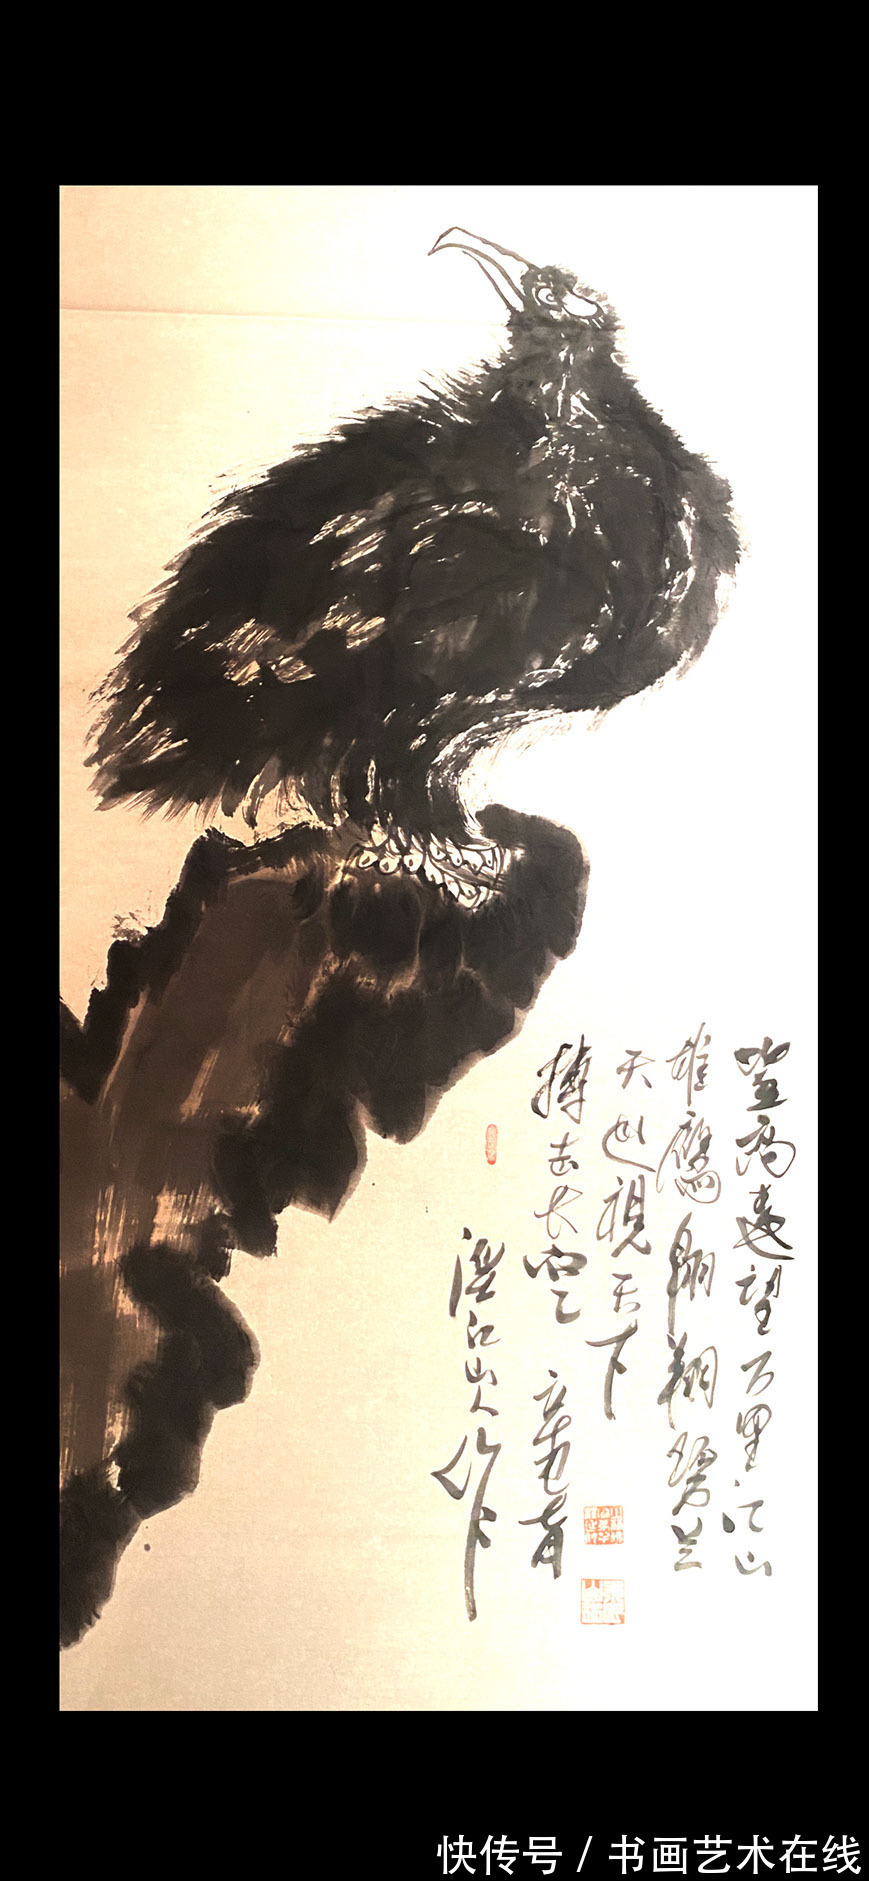 登高远望万里江山
雄鹰翱翔碧兰
天 视天下
搏击长空
江山人作
快传号 / 书画艺术在线